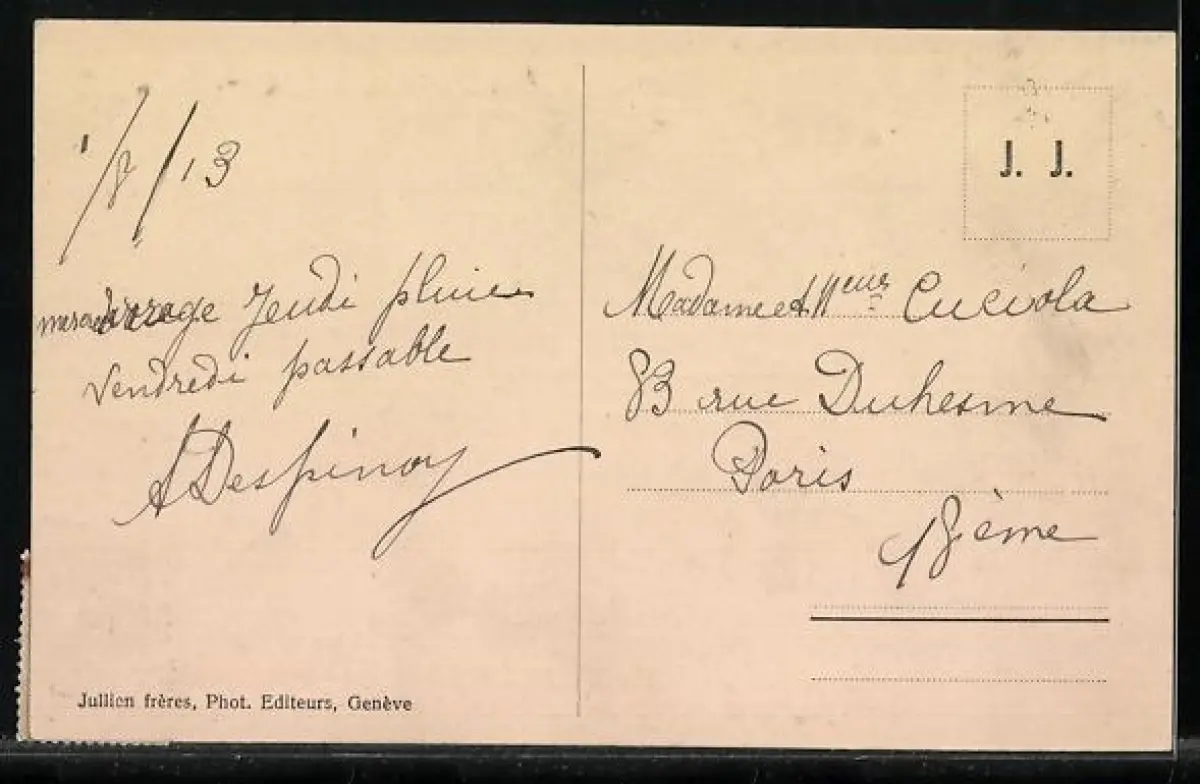 1/8/13
orage Jeudi pluie
Vendredi passable
A Despinoy
Jullien frères, Phot. Editeurs, Genève
J. J.
Madame et Mr Cuciola
83 rue Duhesme
Paris
18ème